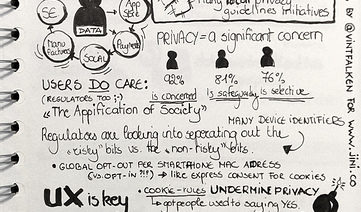 guidelines initiatives
SE
App Store
DATA
Manufacturers
Social
Payment
BY @VINTFALKEN FOR WWW.JINI.CO
PRIVACY = a significant concern
92% is concerned
84% is safeguarding
76% is selective
USERS DO CARE:
(REGULATORS TOO ;-)
"The Appification of Society"
MANY DEVICE IDENTIFIERS
Regulators are looking into separating out the
"risky" bits vs. the "non-risky" bits.
• GLOBAL OPT-OUT PER SMARTPHONE MAC ADDRESS
(vs. OPT-IN ?!!) → like EXPRESS CONSENT FOR COOKIES
UX is key
• COOKIE-RULES UNDERMINE PRIVACY
↳ got people used to saying YES.